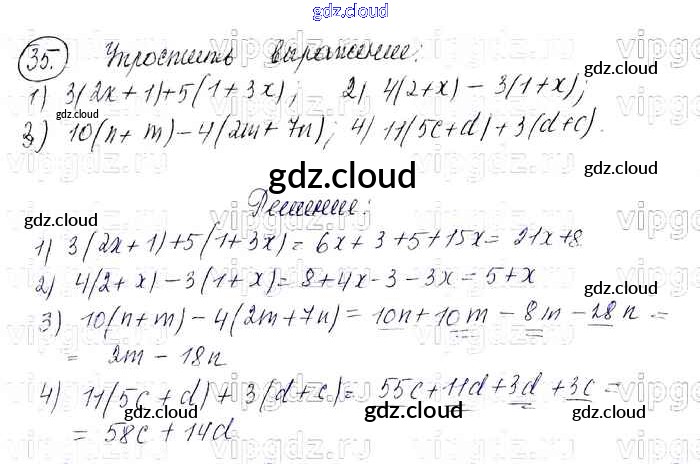 gdz.cloud
35. Упростить выражение:
1) 3(2x+1)+5(1+3x); 2) 4(2+x)-3(1+x);
gdz.cloud
gdz.cloud
3) 10(n+m)-4(2m+7n); 4) 11(5c+d)+3(d+c).
gdz.cloud
gdz.cloud
gdz.cloud
Решение:
gdz.cloud
gdz.cloud
1) 3(2x+1)+5(1+3x)=6x+3+5+15x=21x+8
2) 4(2+x)-3(1+x)=8+4x-3-3x=5+x
gdz.cloud
gdz.cloud
3) 10(n+m)-4(2m+7n)=10n+10m-8m-28n=
= 2m-18n
gdz.cloud
4) 11(5c+d)+3(d+c)=55c+11d+3d+3c=
gdz.cloud
gdz.cloud
= 58c+14d
gdz.cloud